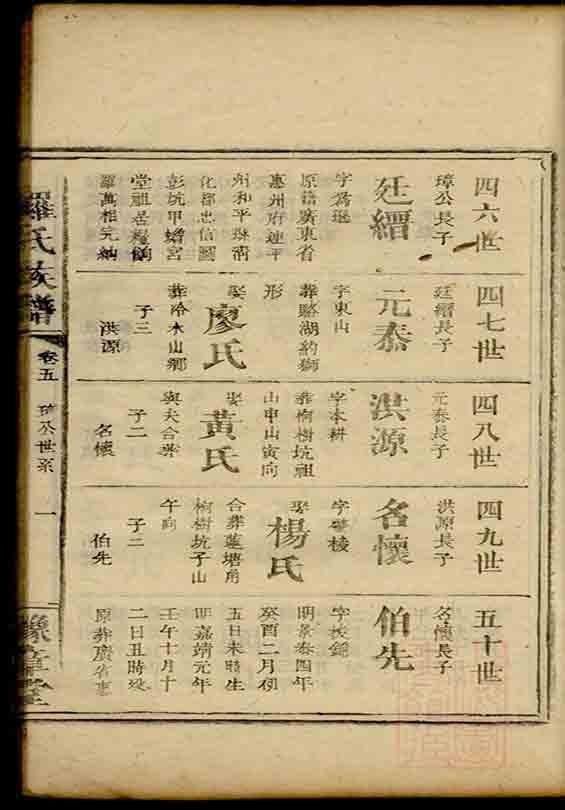 四六世
璋公長子
廷縉
字為珽
原籍廣東省
惠州府連平
州和平縣淸
化鄉忠信圖
彭坑甲蟾宮
堂祖是糧餉
羅萬相完納
四七世
廷縉長子
元泰
字東山
葬骆湖約獅
形
娶
廖氏
葬哈水山鄉
子三
洪源
四八世
元泰長子
洪源
字本耕
葬桐樹坑祖
山申山寅向
娶
黃氏
與夫合葬
子二
名懷
四九世
洪源長子
名懷
娶
楊氏
合葬蓮塘角
桐樹坑子山
午向
子二
伯先
五十世
名懷長子
伯先
明景泰四年
癸酉二月初
五日未時生
明嘉靖元年
壬午十月十
二日丑時殁
原葬廣省惠
羅氏族譜
卷五
公世系
一
豫章堂